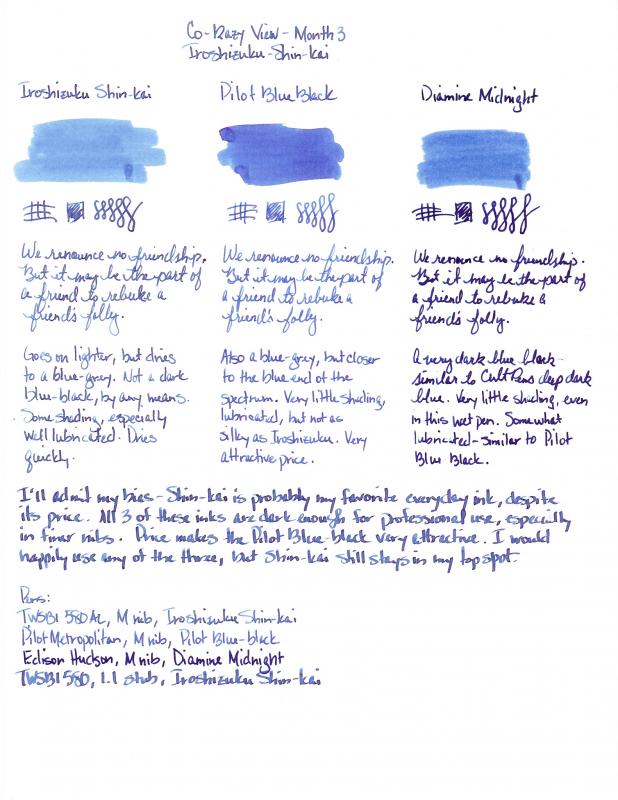 Co-Razy View - Month 3
Iroshizuku-Shin-kai
Iroshizuku Shin-kai
Pilot Blue Black
Diamine Midnight
We renounce no friendship.
But it may be the part of
a friend to rebuke a
friend's folly.
We renounce no friendship.
But it may be the part of
a friend to rebuke a
friend's folly.
We renounce no friendship.
But it may be the part of
a friend to rebuke a
friend's folly.
Goes on lighter, but dries
to a blue-grey. Not a dark
blue-black, by any means.
Some shading, especially
well lubricated. Dries
quickly.
Also a blue-grey, but closer
to the blue end of the
spectrum. Very little shading,
lubricated, but not as
silky as Iroshizuku. Very
attractive price.
A very dark blue black-
similar to Cult Pens deep dark
blue. Very little shading, even
in this wet pen. Somewhat
lubricated-similar to Pilot
Blue Black.
I'll admit my bias - Shin-kai is probably my favorite everyday ink, despite
its price. All 3 of these inks are dark enough for professional use, especially
in finer nibs. Price makes the Pilot Blue-black very attractive. I would
happily use any of the three, but Shin-kai still stays in my top spot.
Pens:
TWSBI 580AL, M nib, Iroshizuku Shin-kai
Pilot Metropolitan, M nib, Pilot Blue-black
Edison Hudson, M nib, Diamine Midnight
TWSBI 580, 1.1 stub, Iroshizuku Shin-kai